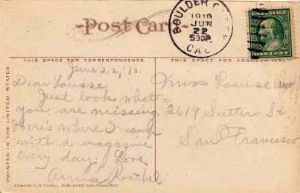 Post Card
BOULDER CREEK
1910
JUN
22
530P
CAL
THIS SPACE FOR CORRESPONDENCE
THIS SPACE FOR ADDRESS
June 22, '10.
Dear Louise
Just look what
you are missing.
Here's where I camp
with a magazine
every day. Love,
Anna
Miss Louise
2619 Sutter St.,
San Francisco
MADE IN THE UNITED STATES
EDWARD H. MITCHELL, PUBLISHER, SAN FRANCISCO